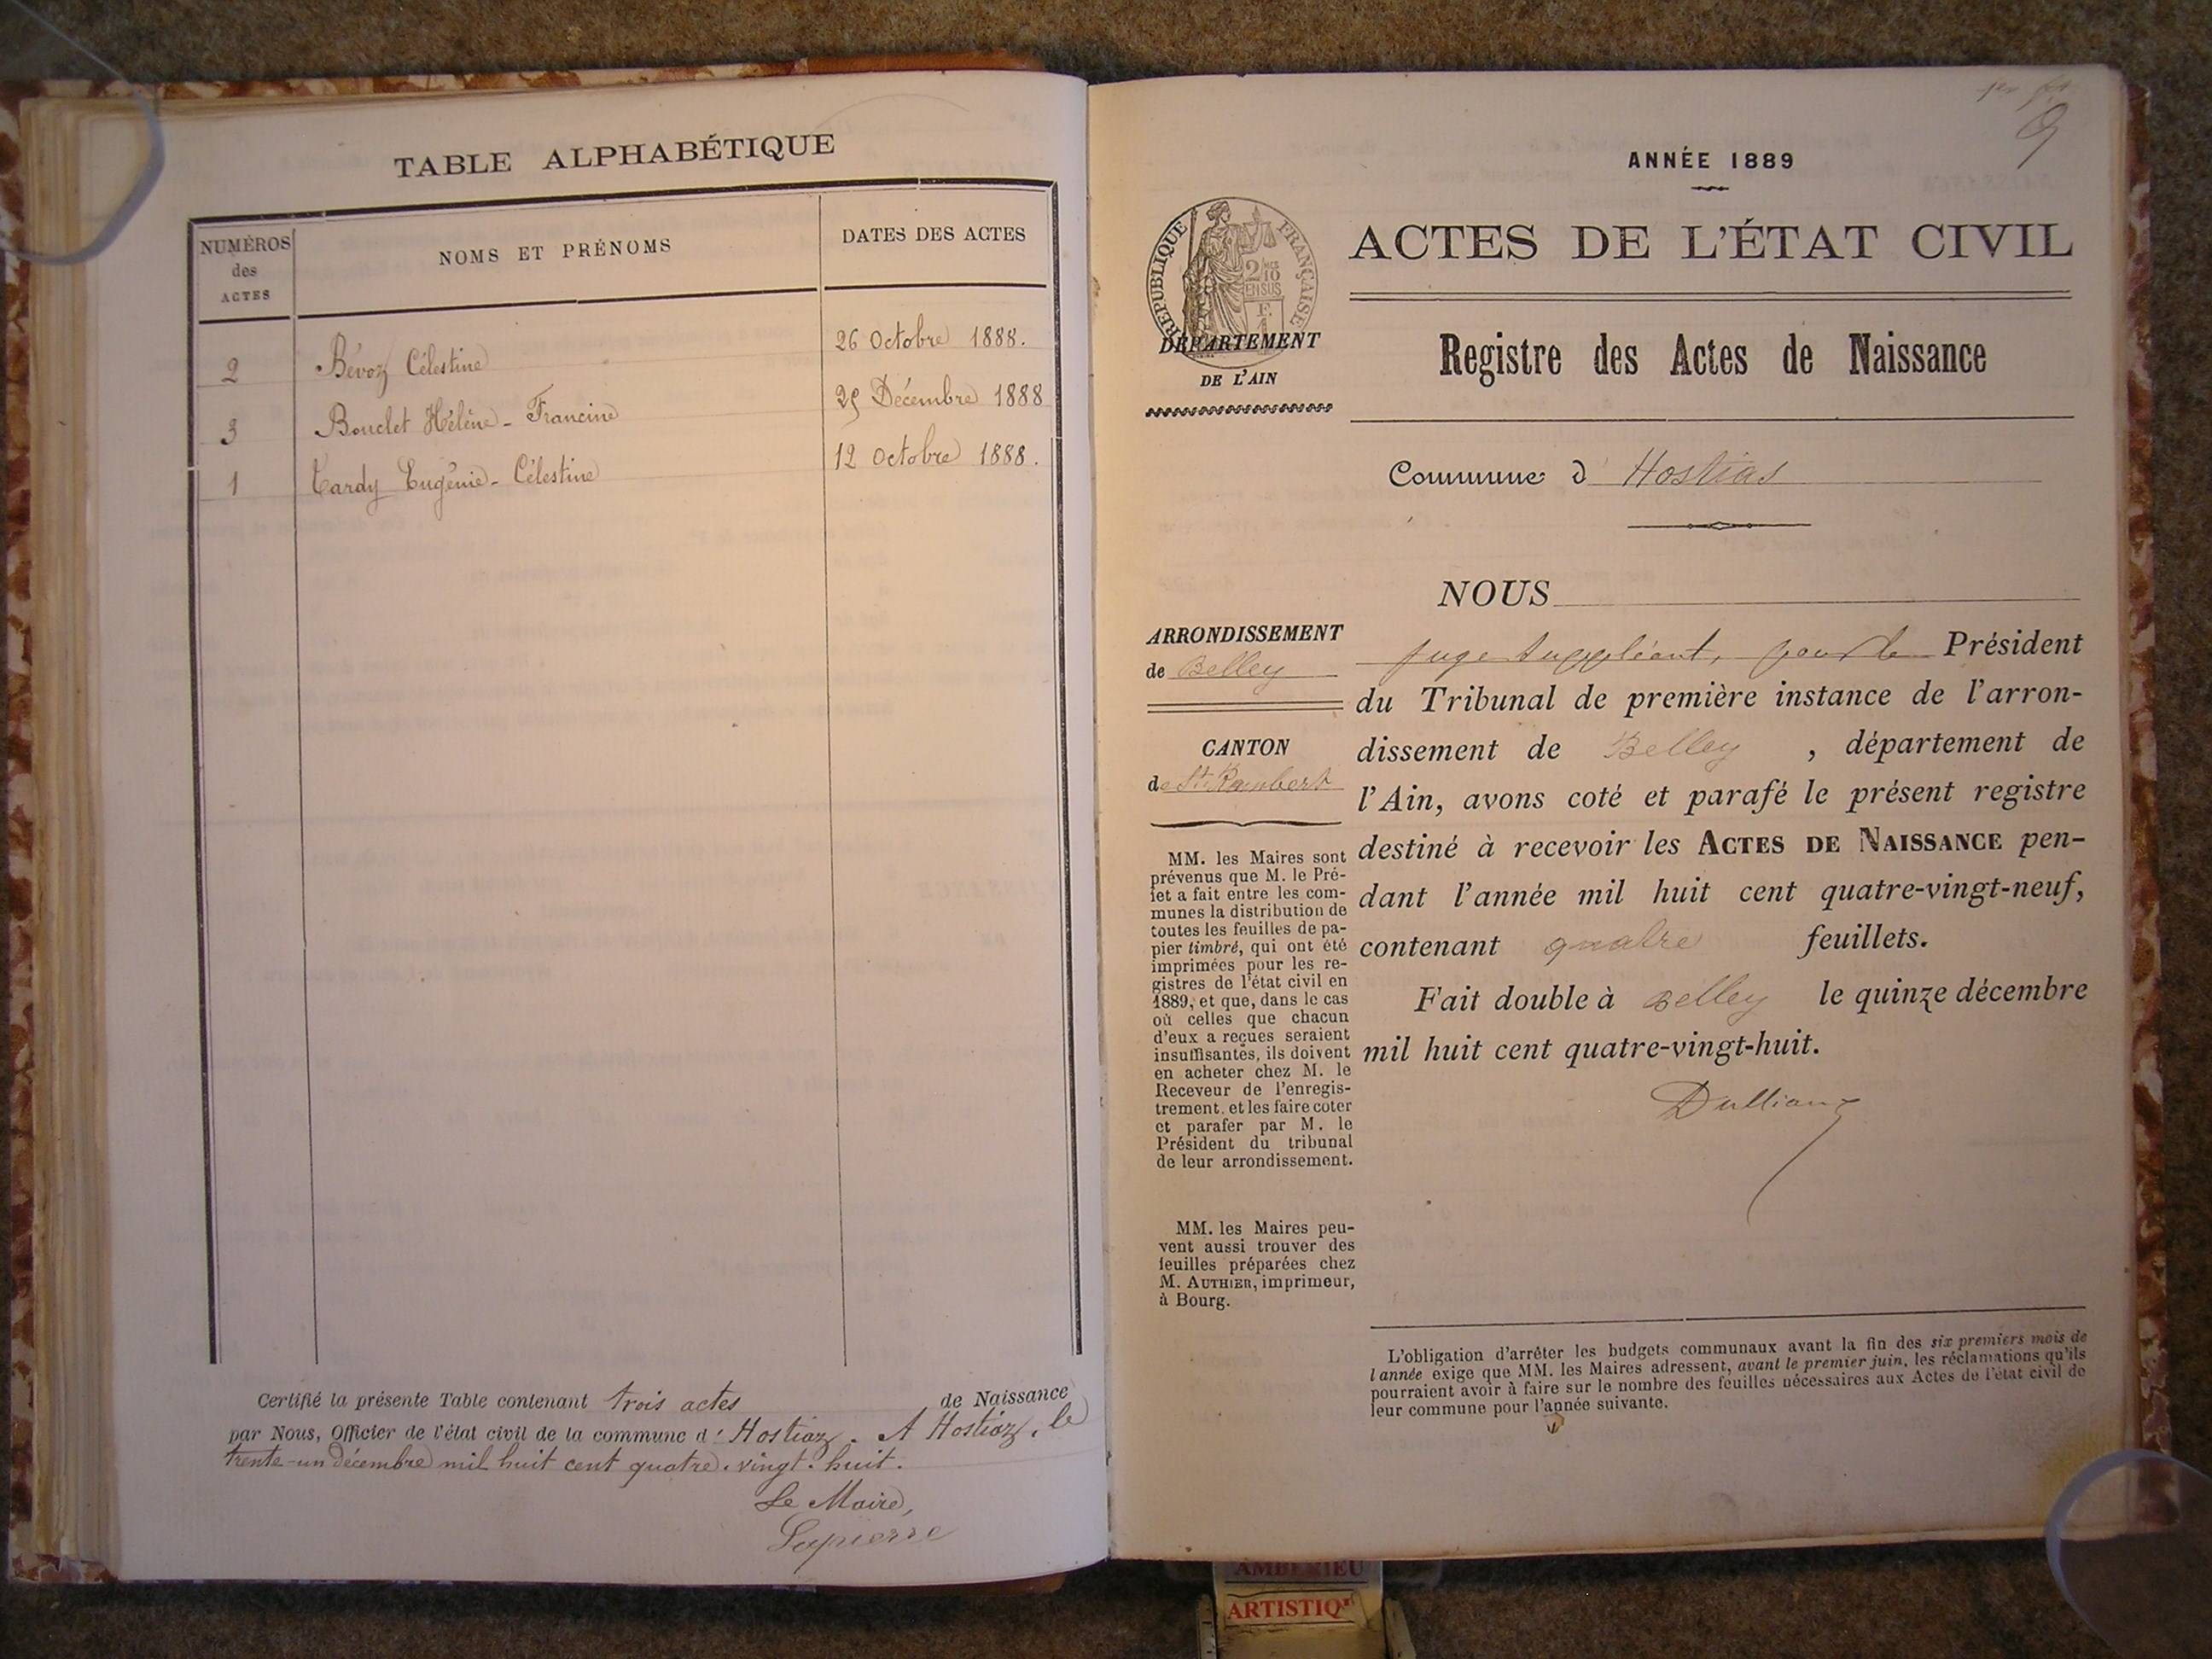 TABLE ALPHABÉTIQUE
NUMÉROS
des
ACTES
NOMS ET PRÉNOMS
DATES DES ACTES
2 Bévoz Célestine 26 Octobre 1888.
3 Bouclet Hélène - Francine 25 Décembre 1888
1 Tardy Eugénie - Célestine 12 Octobre 1888.
Certifié la présente Table contenant trois actes de Naissance
par Nous, Officier de l'état civil de la commune d' Hostiaz. A Hostiaz, le
trente-un décembre mil huit cent quatre-vingt-huit.
Le Maire,
Lapierre
9
ANNÉE 1889
RÉPUBLIQUE FRANÇAISE
ACTES DE L'ÉTAT CIVIL
DÉPARTEMENT
DE L'AIN
Registre des Actes de Naissance
Commune d' Hostias
ARRONDISSEMENT
de Belley
CANTON
de St Rambert
MM. les Maires sont
prévenus que M. le Pré-
fet a fait entre les com-
munes la distribution de
toutes les feuilles de pa-
pier timbré, qui ont été
imprimées pour les re-
gistres de l'état civil en
1889, et que, dans le cas
où celles que chacun
d'eux a reçues seraient
insuffisantes, ils doivent
en acheter chez M. le
Receveur de l'enregis-
trement. et les faire coter
et parafer par M. le
Président du tribunal
de leur arrondissement.
MM. les Maires peu-
vent aussi trouver des
feuilles préparées chez
M. AUTHIER, imprimeur,
à Bourg.
NOUS
juge suppléant, pour le Président
du Tribunal de première instance de l'arron-
dissement de Belley , département de
l'Ain, avons coté et parafé le présent registre
destiné à recevoir les ACTES DE NAISSANCE pen-
dant l'année mil huit cent quatre-vingt-neuf,
contenant quatre feuillets.
Fait double à Belley le quinze décembre
mil huit cent quatre-vingt-huit.
L'obligation d'arrêter les budgets communaux avant la fin des six premiers mois de
l'année exige que MM. les Maires adressent, avant le premier juin, les réclamations qu'ils
pourraient avoir à faire sur le nombre des feuilles nécessaires aux Actes de l'état civil de
leur commune pour l'année suivante.
AMBERIEU
ARTISTIQ